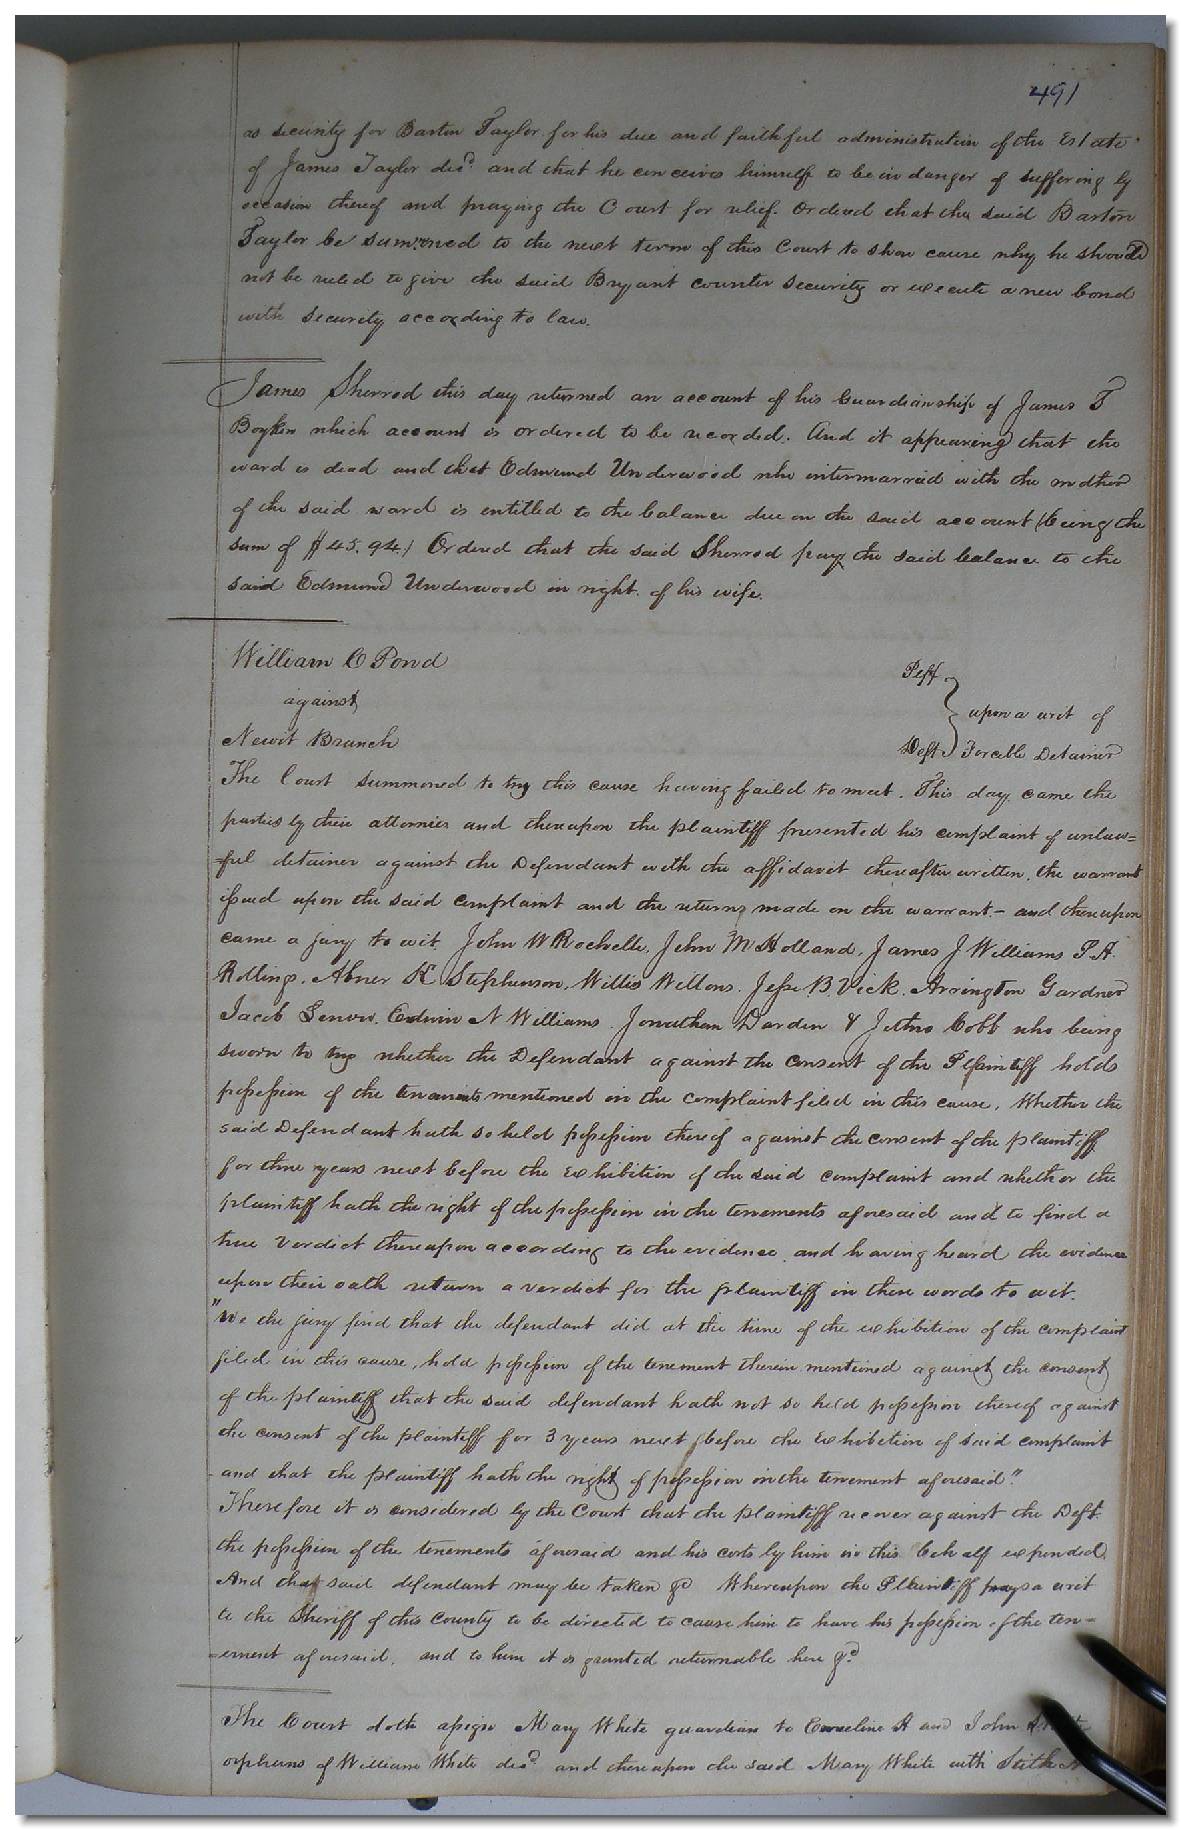 491
as security for Barton Taylor for his due and faithful administration of the Estate
of James Taylor decd. and that he conceives himself to be in danger of suffering by
occasion thereof and praying the Court for relief. Ordered that the said Barton
Taylor be summoned to the next term of this Court to show cause why he should
not be ruled to give the said Bryant counter security or execute a new bond
with security according to law.
James Sherrod this day returned an account of his Guardianship of James T
Boykin which account is ordered to be recorded. And it appearing that the
ward is dead and that Edmund Underwood who intermarried with the mother
of the said ward is entitled to the balance due on the said account (being the
sum of $45.94) Ordered that the said Sherrod pay the said balance to the
said Edmund Underwood in right of his wife.
William C Pond Plff
against upon a writ of
Newit Branch Deft Forcible Detainer
The Court summoned to try this cause having failed to meet. This day came the
parties by their attornies and thereupon the plaintiff presented his complaint of unlaw=
=ful detainer against the Defendant with the affidavit thereafter written, the warrant
issued upon the said complaint and the returns made on the warrant. - and thereupon
came a jury to wit. John W Rochelle, John M Holland, James J Williams P. A.
Rollings, Abner K Stephenson, Willis Wellons. Jesse B. Vick. Arrington Gardner
Jacob Edwin N Williams. Jonathan Darden & Jethro Cobb who being
sworn to try whether the Defendant against the consent of the Plaintiff holds
possession of the tenements mentioned in the complaint filed in this cause. Whether the
said Defendant hath so held possession thereof against the consent of the plaintiff
for three years next before the exhibition of the said complaint and whether the
plaintiff hath the right of the possession in the tenements aforesaid and to find a
true verdict thereupon according to the evidence and having heard the evidence
upon their oath return a verdict for the plaintiff in these words to wit.
"We the jury find that the defendant did at the time of the exhibition of the complaint
filed in this cause, hold possession of the tenement therein mentioned against the consent
of the plaintiff that the said defendant hath not so held possession thereof against
the consent of the plaintiff for 3 years next before the exhibition of said complaint
- and that the plaintiff hath the right of possession in the tenement aforesaid."
Therefore it is considered by the Court that the plaintiff recover against the Deft.
the possession of the tenements aforesaid and his costs by him in this behalf expended.
And that said defendant may be taken &c Whereupon the Plaintiff prays a writ
to the Sheriff of this County to be directed to cause him to have his possession of the ten=
=ement aforesaid. and to him it is granted returnable here &c.
The Court doth assign Mary White guardian to Emeline A and John
orphans of William White decd. and thereupon the said Mary White with